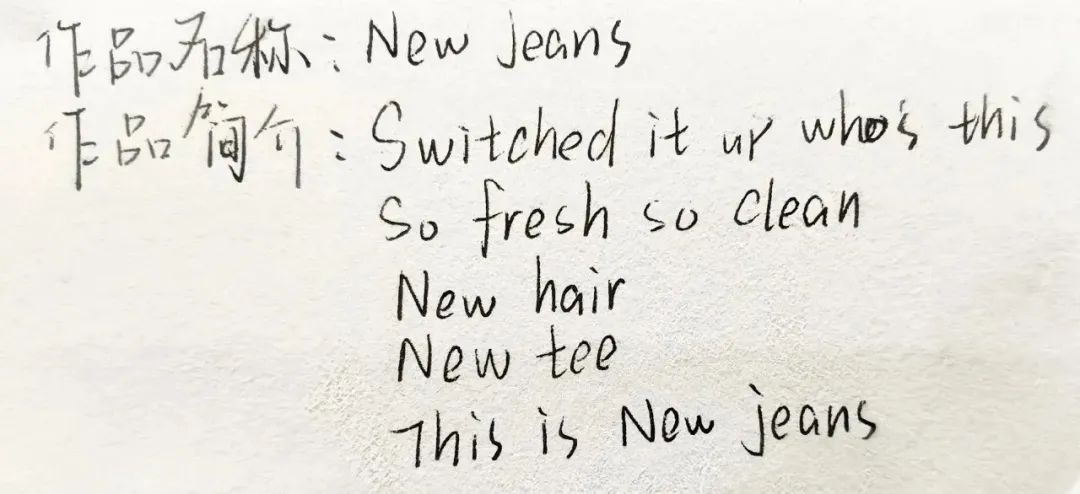 作品名称：New jeans
作品简介：Switched it up who's this
So fresh so clean
New hair
New tee
This is New jeans